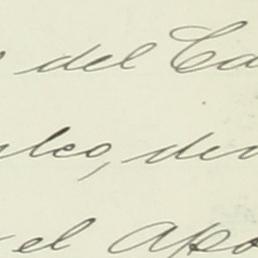 del Ca
ulco, den
el Apo